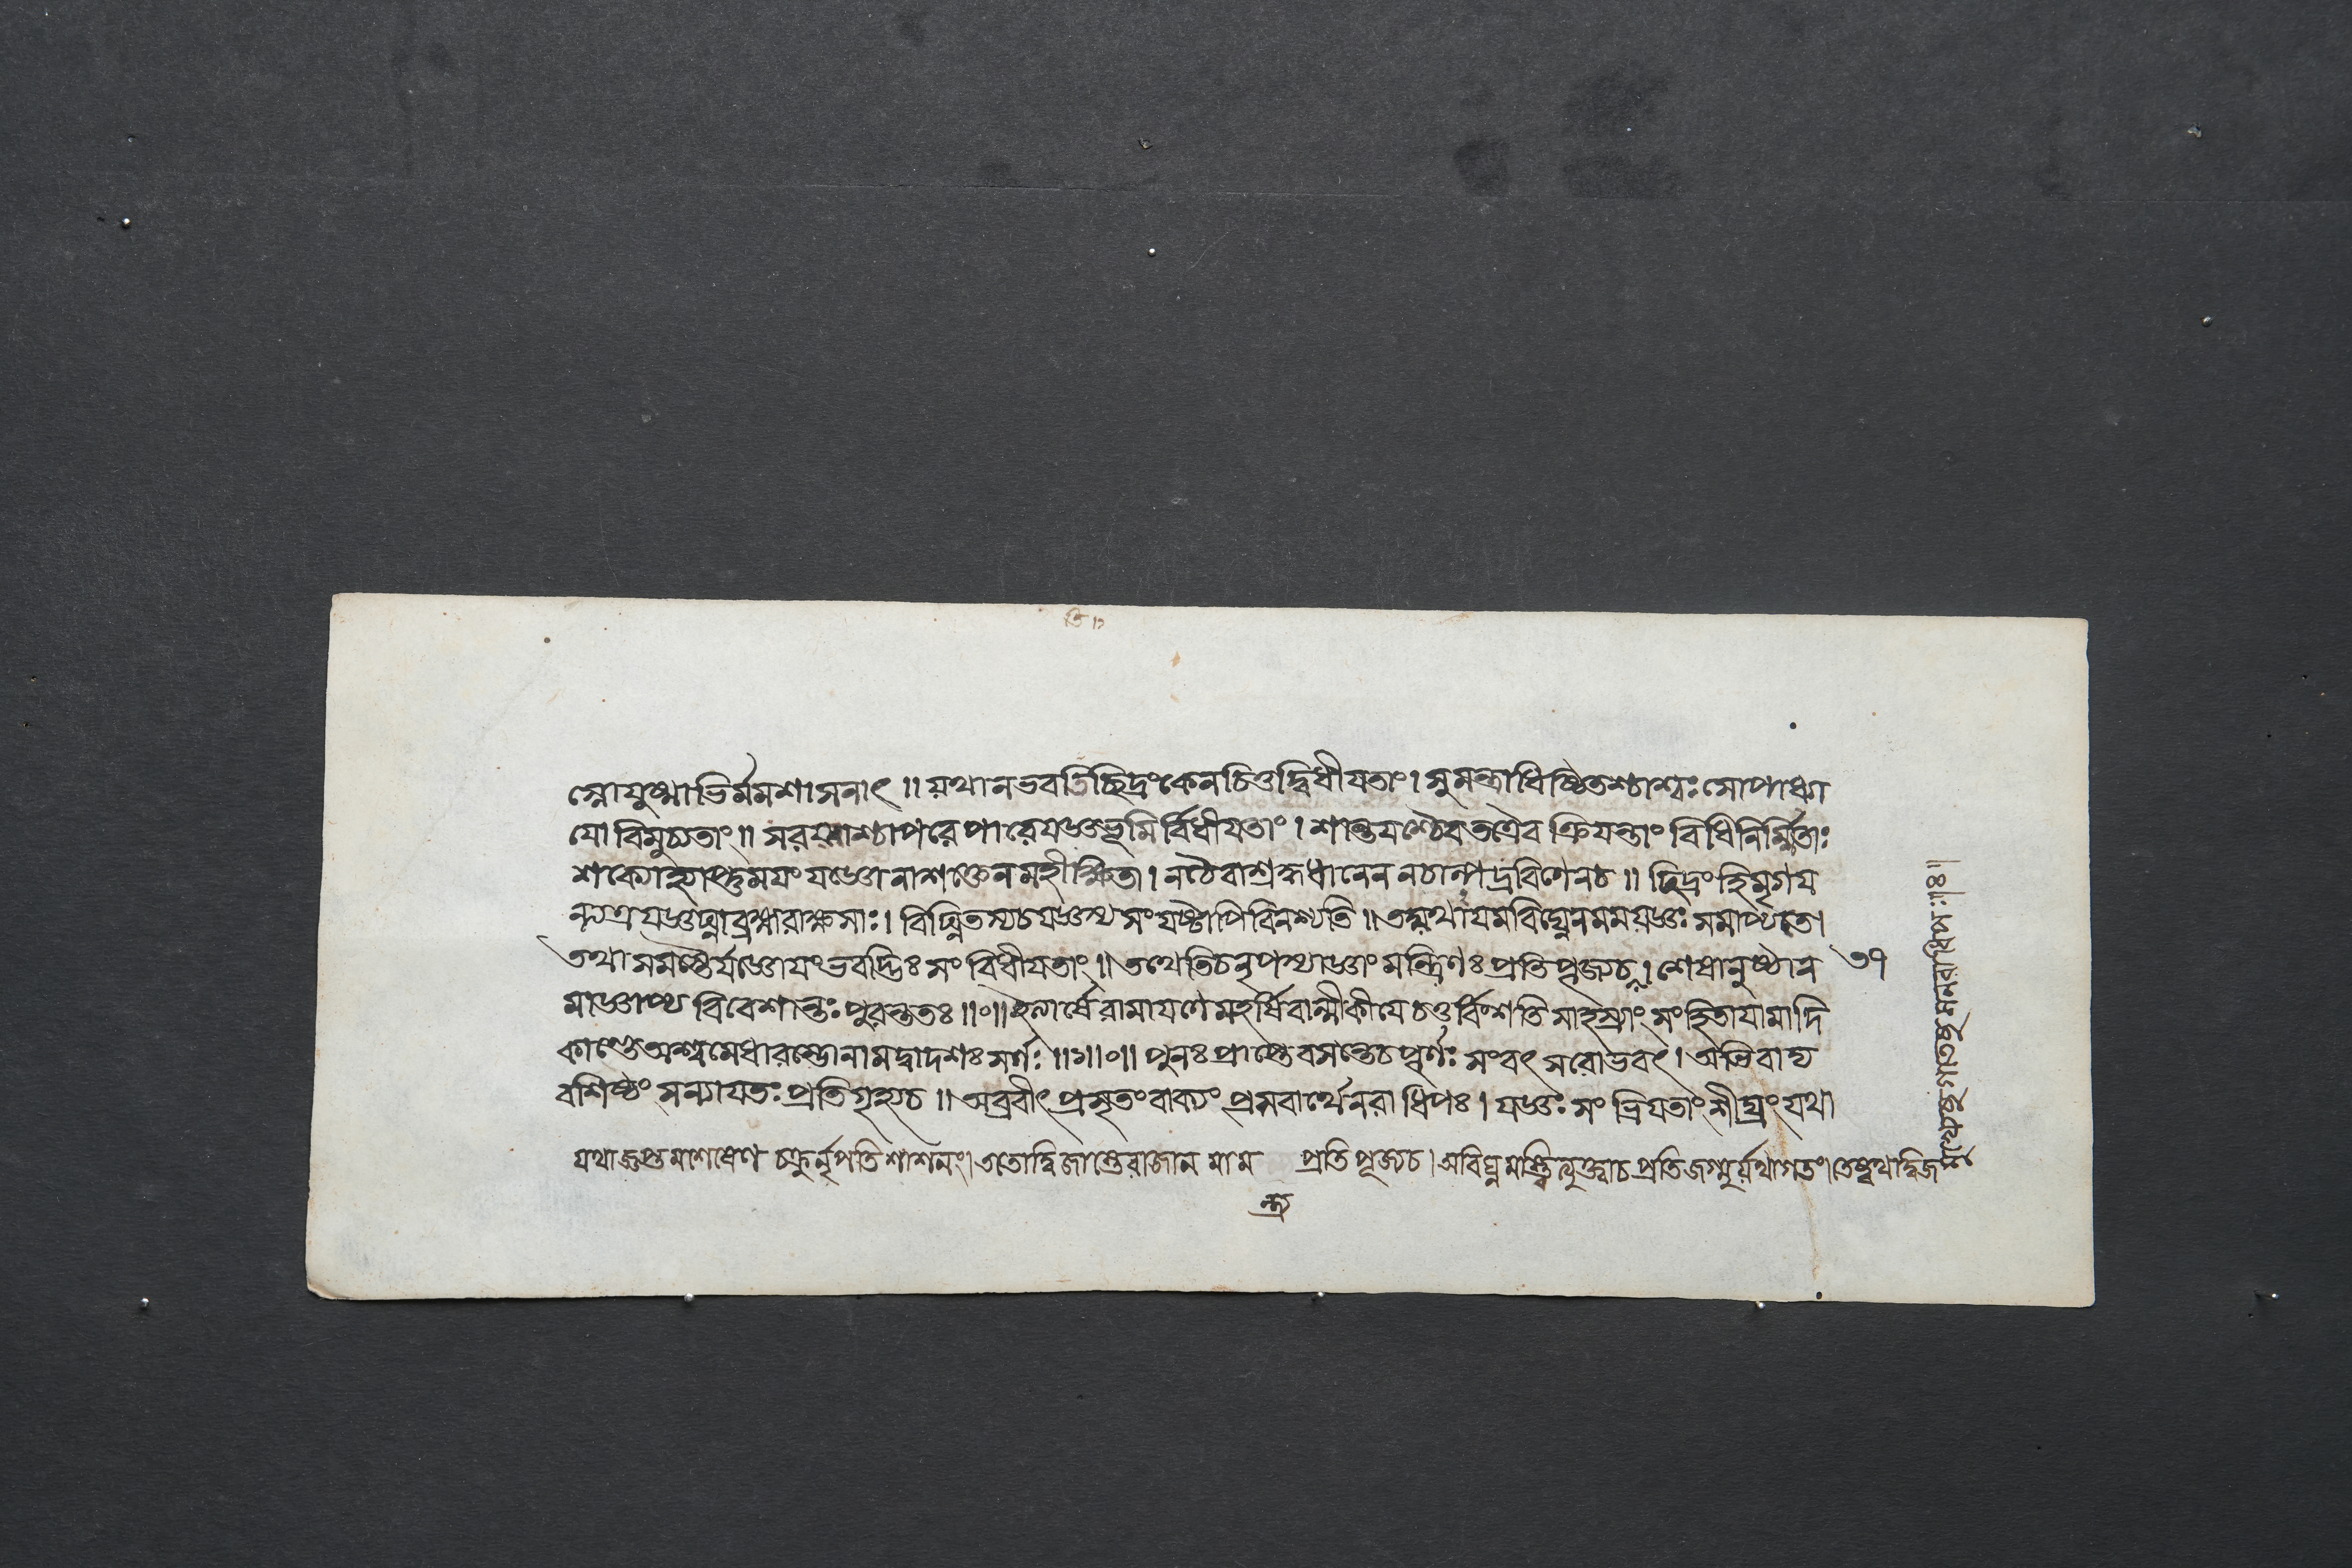 জ্ঞোযুষ্মাভির্মমশাসনাৎ ॥ যথানভবতিচ্ছিদ্রংকেনচিত্তদ্বিধীযতাং । সুমন্ত্রাধিষ্ঠিতশ্চাশ্বঃ সোপাধ্যা
যো বিমুচ্যতাং ॥ সরয্বাশ্চাপরে পারেযজ্ঞভূমির্বিধীযতাং । শান্তযশ্চৈব তত্রৈব ক্রিযন্তাং বিধিনির্ম্মিতাঃ
শক্যোহ্যাপ্তুমযং যজ্ঞোনাশক্তেন মহীক্ষিতা । নচৈবাশ্রদ্দধানেন নচাল্পদ্রবিণেনচ ॥ ছিদ্রংহিমৃগয
ন্ত্যত্র যজ্ঞঘ্নাব্রহ্মরাক্ষসাঃ । বিঘ্নিতস্যচযজ্ঞস্য সংযষ্টাপিবিনশ্যতি ॥ তদ্যথাযমবিঘ্নেনমমযজ্ঞঃ সমাপ্যতে।
তথা সমস্তৈর্যজ্ঞোযংভবদ্ভিঃ সংবিধীযতাং ॥ তথেতিচনৃপস্যাজ্ঞাং মন্ত্রিণঃ প্রতিপূজ্যচ । শেষানুষ্ঠান
মাজ্ঞাপ্য বিবেশান্তঃপুরন্ততঃ ॥০॥ ইত্যার্ষে রামাযণে মহর্ষিবাল্মীকীযে চতুর্বিংশতি সাহস্র্যাং সংহিতাযামাদি
কাণ্ডেঅশ্বমেধারম্ভোনামদ্বাদশঃ সর্গঃ ॥১॥০॥ পুনঃ প্রাপ্তেবসন্তেচ পূর্ণঃ সংবৎসরোভবৎ । অভিবাদ্য
বশিষ্ঠং সন্যাযতঃ প্রতিগৃহ্যচ ॥ অব্রবীৎ প্রসৃতংবাক্যং প্রসবার্থেনরাধিপঃ । যজ্ঞঃ সংভ্রিযতাং শীঘ্রং যথা
যথাজ্ঞপ্তমশেষেণ চক্রুর্নৃপতিশাশনং। ততোদ্বিজাস্তেরাজানমাম প্রতিপূজ্যচ। অবিঘ্নমস্ত্বিত্যুক্ত্বাচ প্রতিজগ্মুর্যথাগতং। তেষ্বথদ্বিজ
ন্ত্র্য
৩৭
মুখ্যেষুগতেষু মনরাধিপঃ॥৪॥